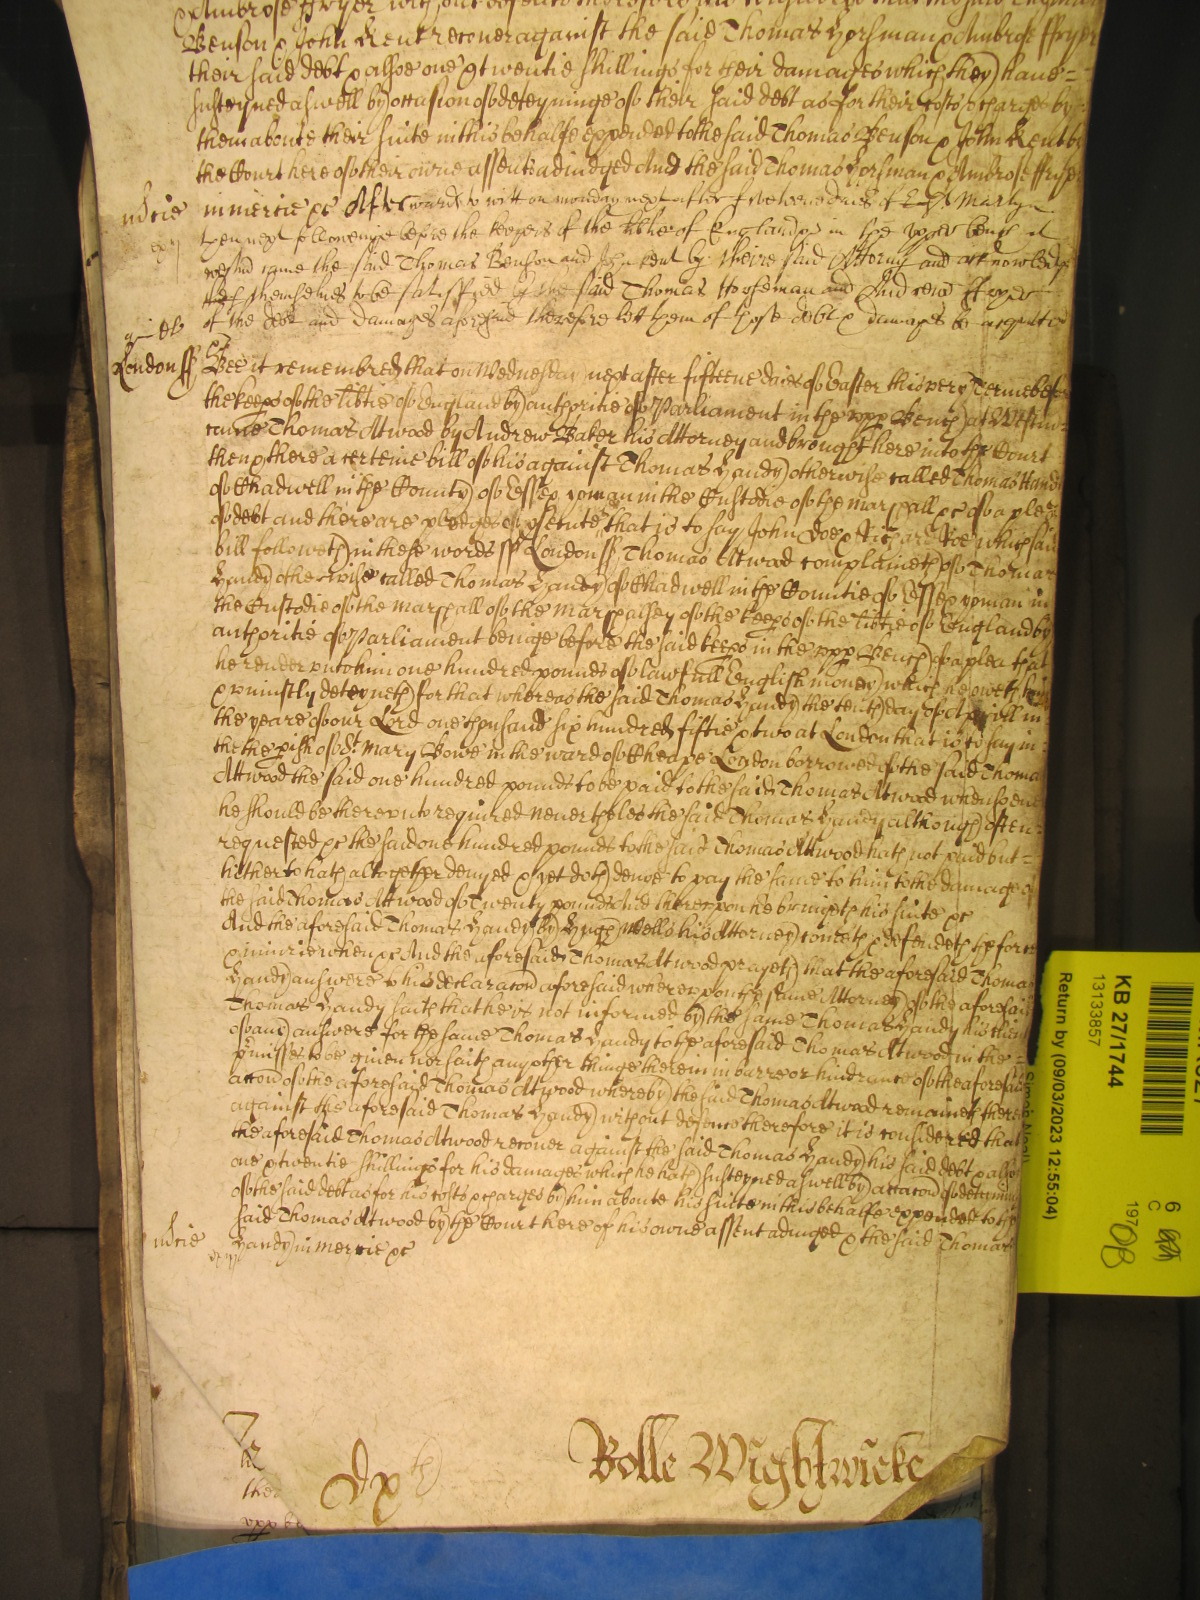 & Ambrose Fryer without defence therefore
Benson & John Kent recover against the said Thomas Horsman & Ambrose Fryer
their said debt & alsoe one & twentie shillings for their damages which they have=
susteyned aswell by occasion of deteyninge of their said debt as for their costs & charges by
them aboute their suite in this behalfe expended to the said Thomas Benson & John Kent by
the Court here of their owne assent adiudged And the said Thomas Horsman & Ambrose Fryer
in mercie &c Afterwards to witt on monday next after
then next followeinge before the keepers of the liberty of England &c in the upper bench at
came the said Thomas Benson and John Kent by theire said Attorny and acknowledge
themselves to be satisffied by the said Thomas Horseman and Fryer
of the debt and damages aforesaid therefore let them of those debt & damages be acquited
London ss Bee it remembred that on Wednesday next after fifteene daies of Easter this very Terme before
the keeps of the libtie of England by authoritie of Parliament in the vpp Bench at Westm=
came Thomas Atwood by Andrew Baker his Attorney and brought here into the Court
then & there a certeine bill of his against Thomas Handy otherwise called Thomas Handy
of Chadwell in the County of Essex yoman in the Custodie of the marshall &c of a plea
of debt and there are pledges of psecute that is to say John Doe & Richard Roe which said
bill followeth in these words ss London ss Thomas Atwood complaineth of Thomas
Handy otherwise called Thomas Handy of Chadwell in the Countie of Essex yoman in
the Custodie of the marshall of the marshalsey of the keeps of the libtie of England by
authoritie of Parliament beinge before the said keeps in the vpp Bench of a plea that
he render vnto him one hundred pounds of lawfull English money which he oweth him
& vniustly deteyneth for that whereas the said Thomas Handy the tenth day of Aprill in
the yeare of our Lord one thousand six hundred fiftie & two at London that is to say in
the the pish of St Mary Bowe in the ward of Cheape London borrowed of the said Thomas
Attwood the said one hundred pounds to be paid to the said Thomas Atwood whensoever
he should be therevnto required neverthelesthe said Thomas Handy although often=
requested &c the said one hundred pounds to the said Thomas Attwood hath not paid but=
hitherto hath altogether denyed & yet doth denie to pay the same to him to the damage of
the said Thomas Attwood of Twenty pounds And therevpon he bringeth his suite &c
And the aforesaid Thomas Handy by Hugh Wells his Attorney cometh & defendeth the force
& iniurie when &c And the aforesaid Thomas Atwood prayeth that the aforesaid Thomas
Handy answere to his declaracon aforesaid wherevpon the same Attorney of the aforesaid
Thomas Handy saith that he is not informed by the same Thomas Handy his Client
of any answere for the same Thomas Handy to the aforesaid Thomas Atwood in the=
pmisses to be given nor saith any other thinge therein in barre or hindrance of the aforesaid
accon of the aforesaid Thomas Atwood whereby the said Thomas Atwood remaineth therein
against the aforesaid Thomas Handy without defence therefore it is considered that
the aforesaid Thomas Atwood recover against the said Thomas Handy his said debt & alsoe
one & twentie shillings for his damages which he hath susteyned aswell by occacon of deteining
of the said debt as for his costs & charges by him aboute his suite in this behalfe expended to the
said Thomas Atwood by the Court here of his owne assent adiudged & the said Thomas
Handy in mercie &c
Rolle Wightwicke
KB 27/1744
13133857
Return by (09/03/2023 12:55:04)
6
C
197